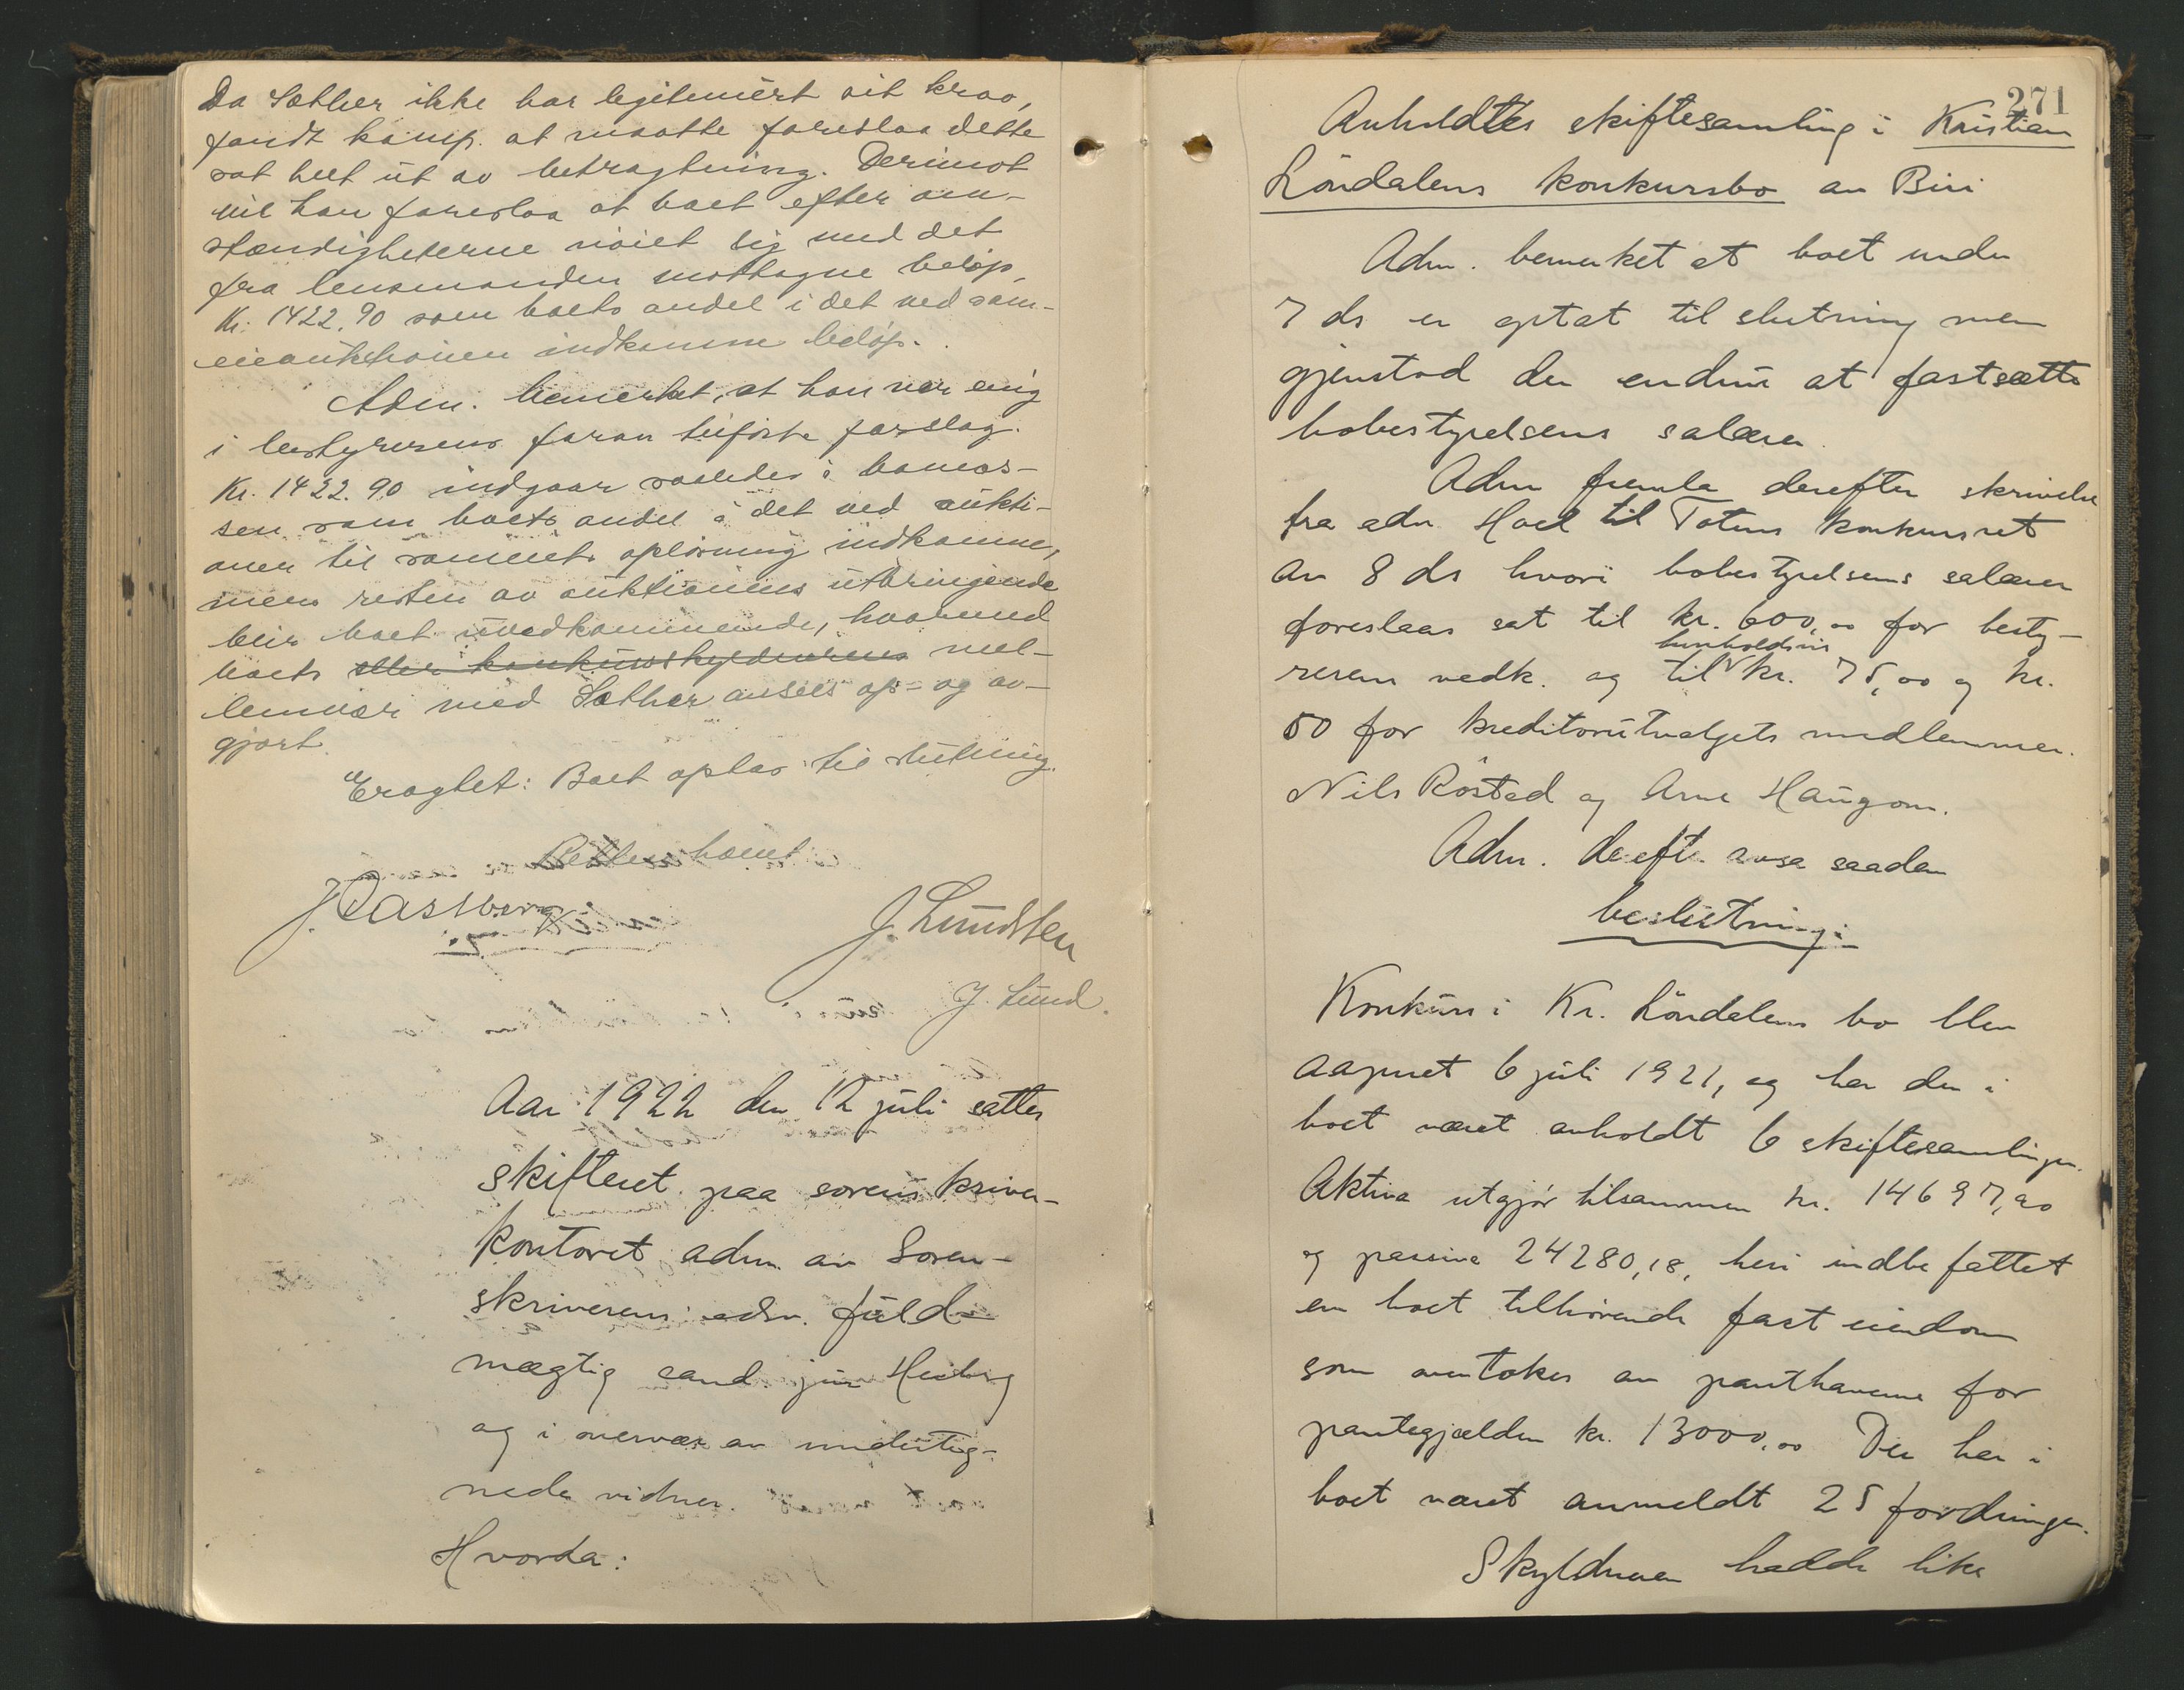 Da Sæther ikke har legitimert sit krav,
fandt komp. at maatte foreslaa dette
sat helt ut av betragtning. Derimot
vil han foreslaa at boet efter om-
stændigheterne nöiet sig med det
fra lensmanden mottagne belöp,
Kr. 1422.90 som boets andel i det ved sam-
eieauktionen indkomne belöp.
Adm. bemerket, at han var enig
i bestyrerens foran tilförte forslag.
Kr. 1422.90 indgaar saaledes i bomas-
sen som boets andel i det ved aukti-
onen til sameiets oplösning indkomne,
mens resten av auktionens utbringende
blir boet uvedkommende, hvormed
boets eller konkursskyldnerens mel-
lemvær med Sæther ansees op- og av-
gjort.
Eragtet: Boet optas til slutning.
Retten hævet
J. Passberg
J. Lundsten
J. Lund.
Aar 1922 den 12 juli sattes
skifteret paa sorenskriver-
kontoret adm. av Soren-
skriverens edsv. fuld-
mægtig cand. jur Heiberg
og i overvær av underteg-
nede vidner.
Hvorda:
271
Anholdtes skiftesamling i Kristian
Löndalens konkursbo av Biri
Adm. bemerket at boet under
7 ds er optat til slutning men
gjenstod der endnu at fastsætte
bobestyrelsens salærer.
Adm fremla derefter skrivelse
fra adv. Hoel til Totens konkursret
av 8 ds hvori bobestyrelsens salærer
foreslaaes sat til kr. 600,00 for besty-
henholdsvis
rerens vedk. og til kr. 75,00 og kr.
50 for kreditorutvalgets medlemmer.
Nils Röstad og Arne Haugom.
Adm. derefter avsa saadan
beslutning:
Konkurs i Kr. Löndalens bo blev
aapnet 6 juli 1921, og har der i
boet været anholdt 6 skiftesamlinger.
Aktiva utgjör tilsammen kr. 14697,90
og passiva 24280,18, heri indbefattet
en boet tilhörende fast eiendom
som overtokes av panthaverne for
pantegjælden kr. 13000,00 Der har i
boet været anmeldt 25 fordringer.
Skyldneren hadde like